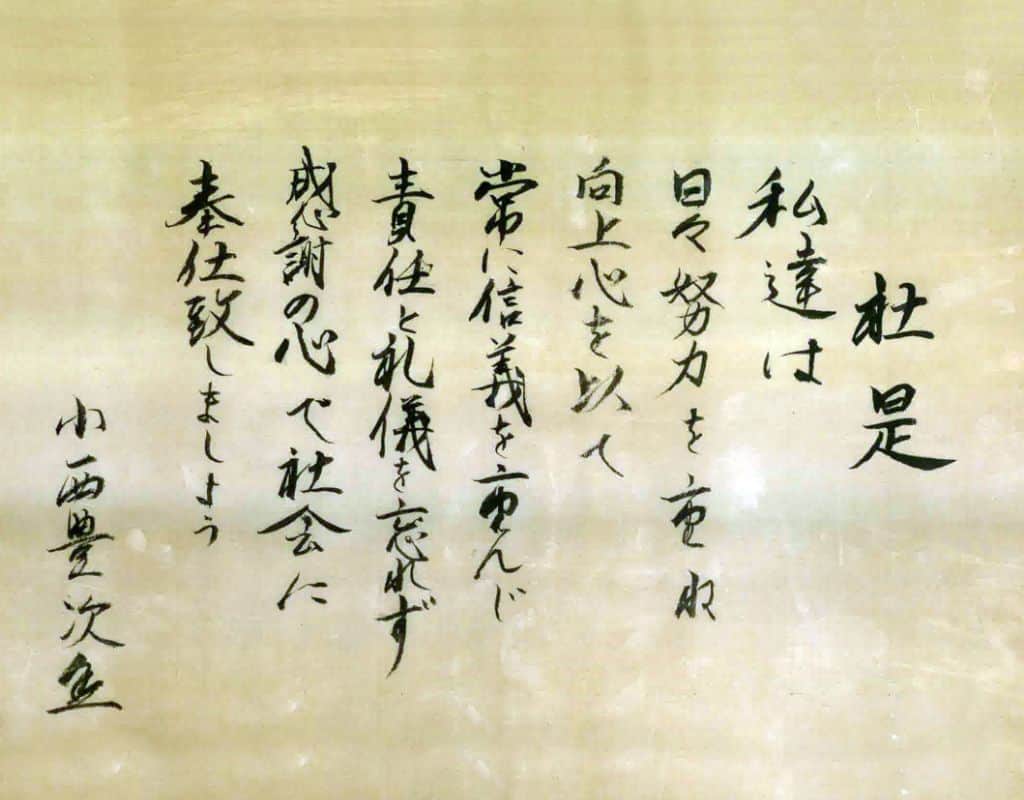 社是
私達は
日々努力を重ね
向上心を以て
常に信義を重んじ
責任と礼儀を忘れず
感謝の心で社会に
奉仕致しましょう
小西豊次